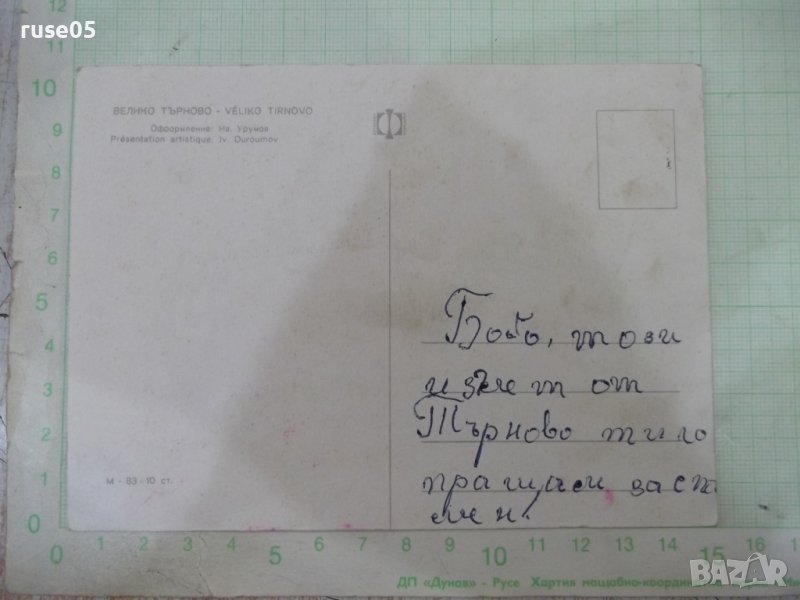 ruse05
ВЕЛИКО ТЪРНОВО - VÉLIKO TIRNOVO
Оформление: Ив. Урумов
Présentation artistique: Iv. Ouroumov
Бобо, този
от
Търново ти го
пращам за спо
мен.
М - 83 - 10 ст.
12
10
9
8
7
5
4
3
2
1
0
0 1 2 3 4 5 6 7 8 9 10 11 12 13 14 15 16
ДП «Дунав» - Русе Хартия мощабно-коорди
BAZAR